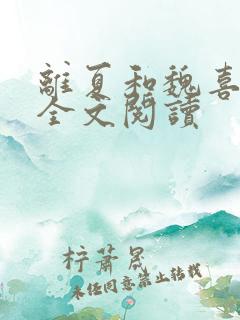 離夏和魏喜
全文閱讀
梓蕭晟
未经同意禁止转载